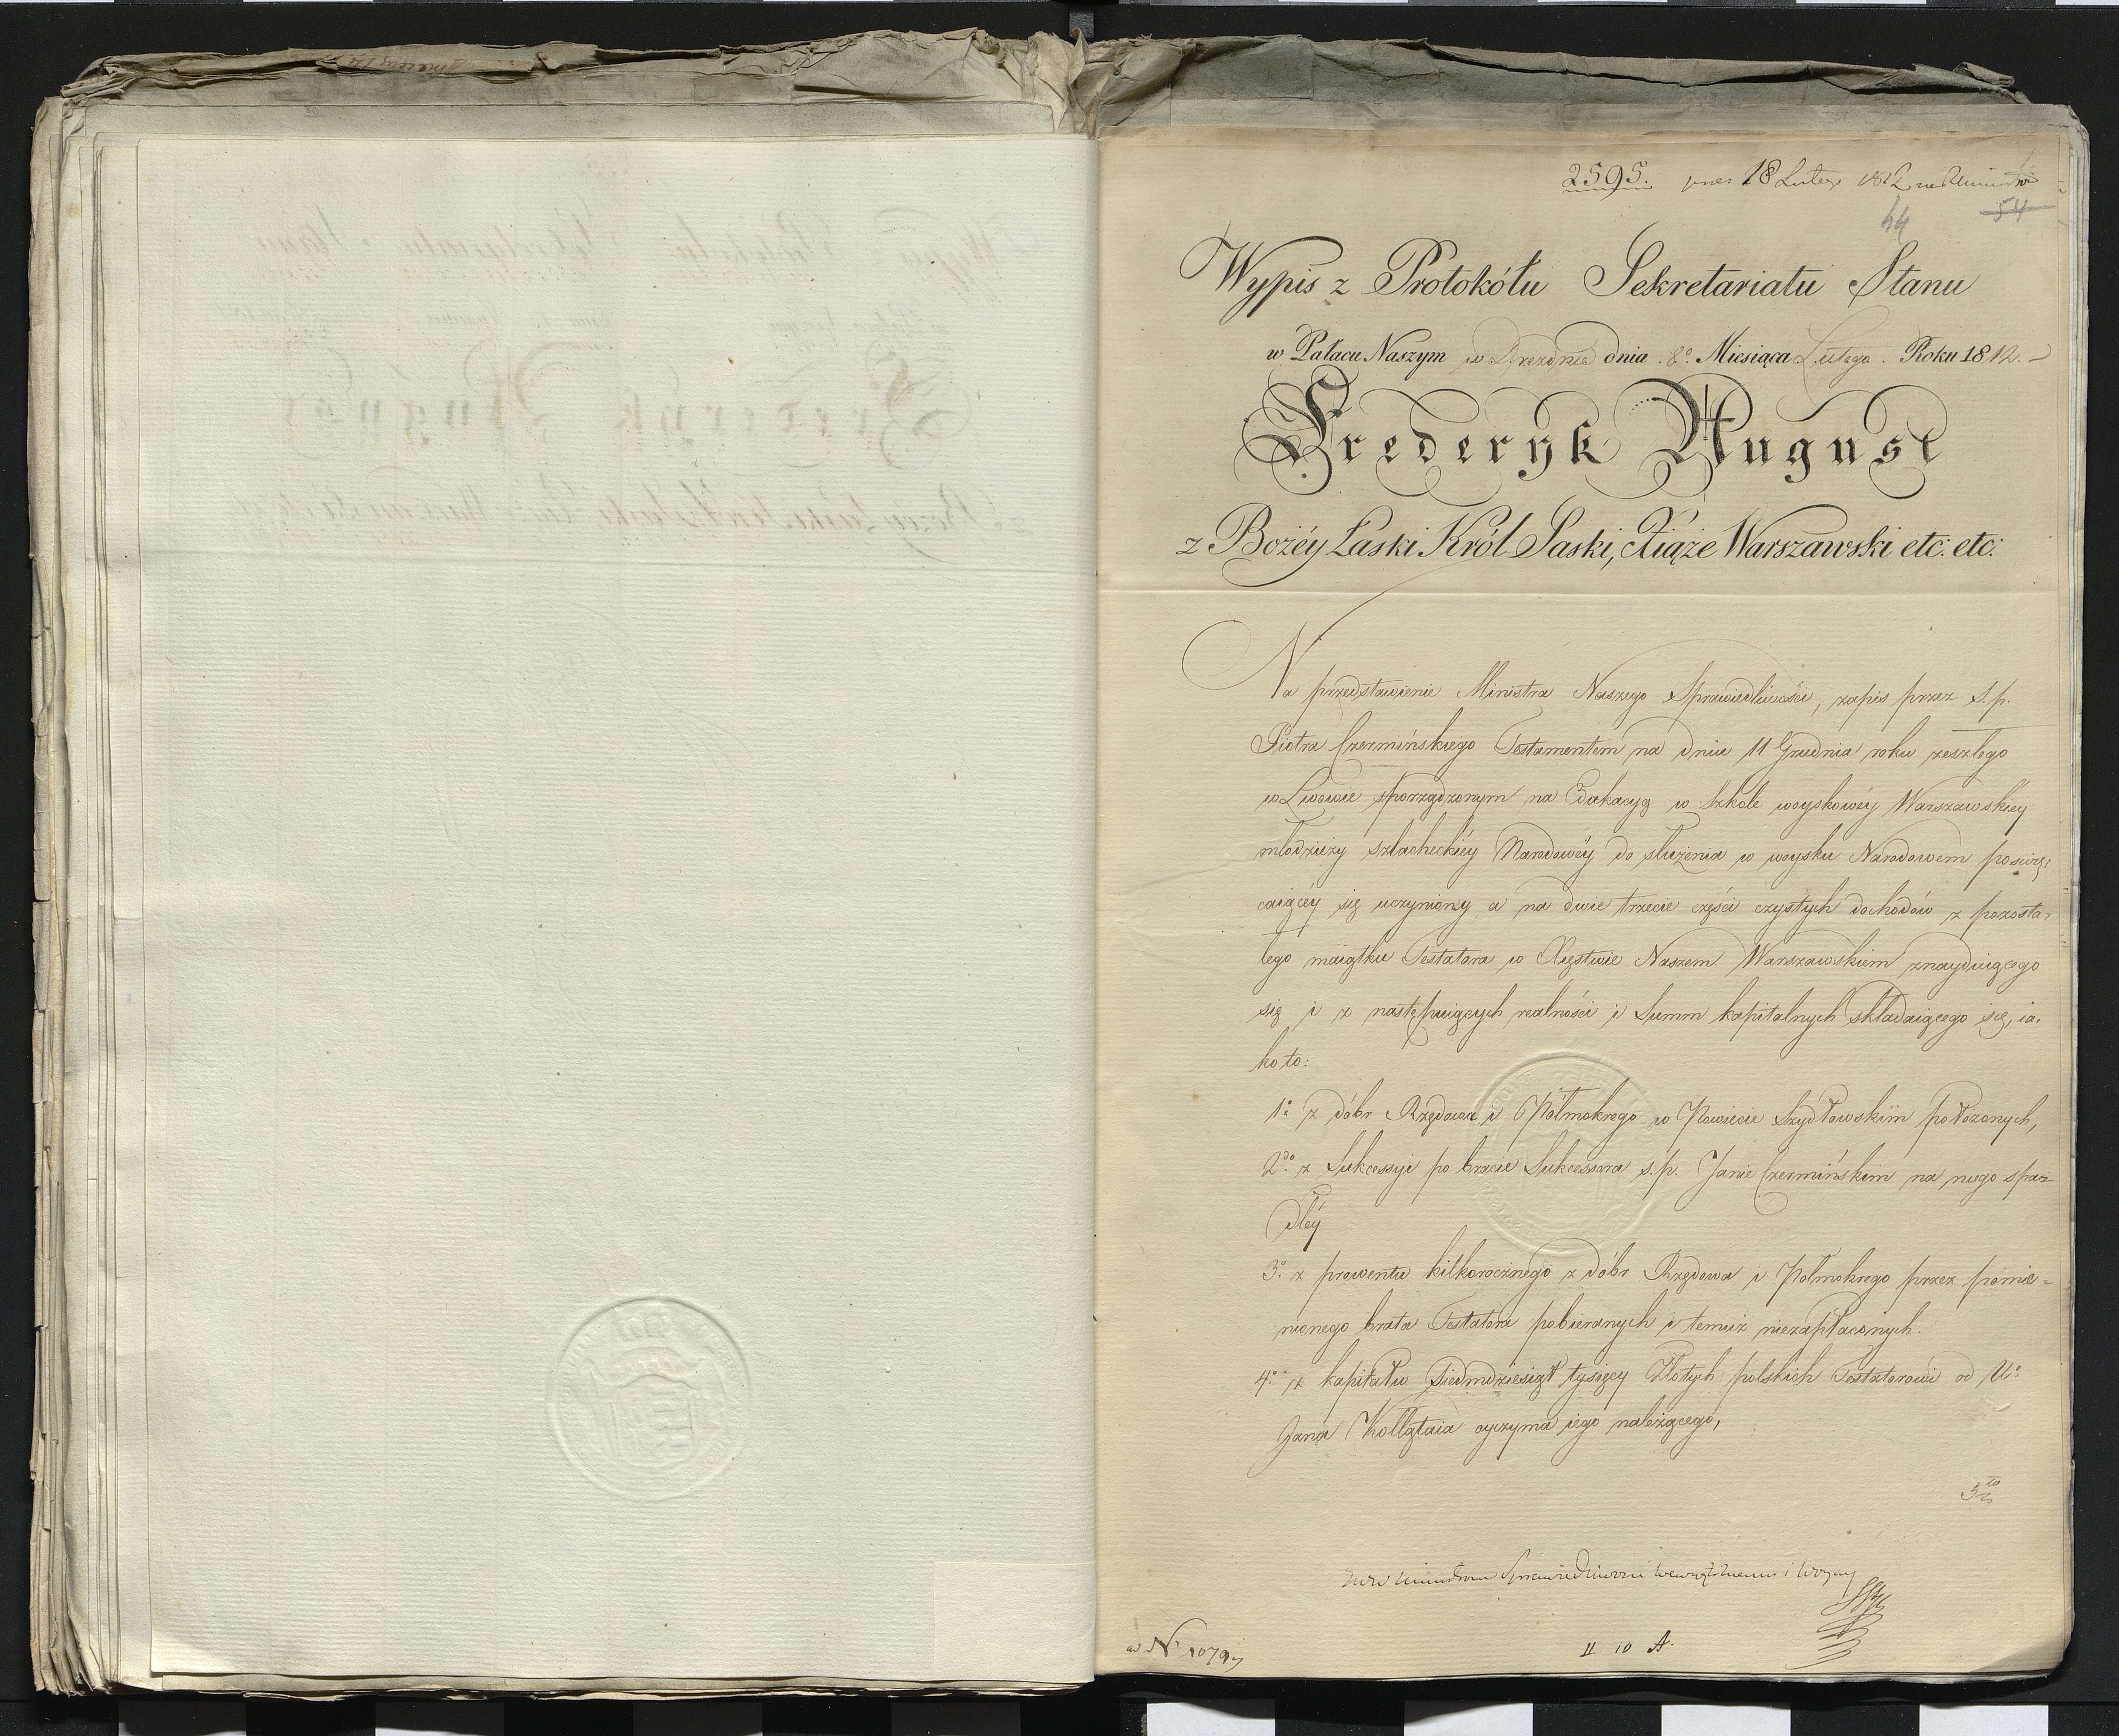 2595. pres 18 Lutego 1812
54
44
Wypis z Protokółu Sekretariatu Stanu
w Pałacu Naszym w Dreznie dnia 8º Miesiąca Lutego. Roku 1812.
Frederyk August
z Bożéy Łaski Król Saski, Xiąże Warszawski etc: etc:
Na przedstawienie Ministra Naszego Sprawiedliwości, zapis przez S. p.
Piotra Czermińskiego Testamentem na dniu 11 Grudnia roku zeszłego
w Lwowie sporządzonym na Edukacyą w Szkole woyskowéy Warszawskiey
młodzieży szlacheckiéy Narodowéy do służenia w woysku Narodowem poswię,
caiącéy się uczyniony a na dwie trzecie części czystych dochodów z pozosta,
łego maiątku Testatora w Xięstwie Naszem Warszawskiem znayduiącego
się i z następuiących realności i Summ kapitalnych składaiącego się, ia,
ko to:
1º z dóbr Rzędowa i Półmokrego w Powiecie Szydłowskim położonych,
2do z Sukcessyi po bracie Sukcessora s. p. Janie Czermińskim na niego spa=
dłéy
3º z prowentu kilkorocznego z dóbr Rzędowa i Polmokrego przez pomie=
nionego brata Testatora pobieranych i temuż niezapłaconych.
4º z kapitału Siedmdziesiąt tysięcy Złotych polskich Testatorowi od Uº
Jana Kołłątaia oyczyma iego należącego,
5to
Sprawiedliwości Wewnętrznemu i Woyny
ad Nr 1079
II 10 A.